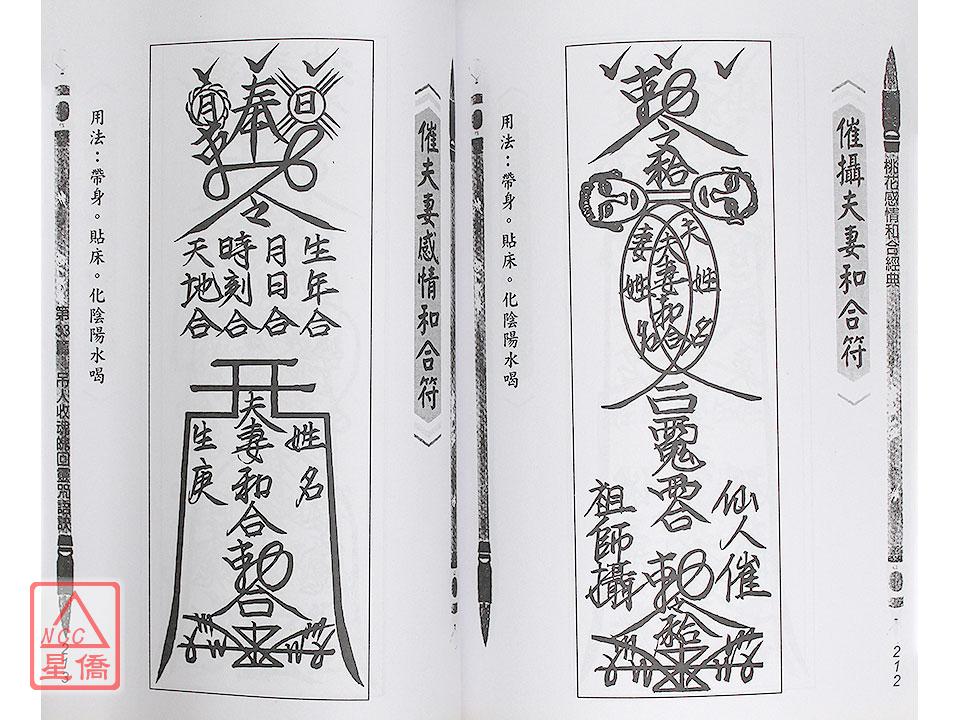 桃花感情和合經典
催攝夫妻和合符
勅
令
夫姓名
夫妻和合
妻姓名
合
仙人催
祖師攝
勅
令
212
用法：帶身。貼床。化陰陽水喝
催夫妻感情和合符
日
奉
月
令
生年合
月日合
時刻合
天地合
姓名
夫妻和合
生庚
勅
合
用法：帶身。貼床。化陰陽水喝
吊人收魂
回靈咒語訣
213
NCC
星僑